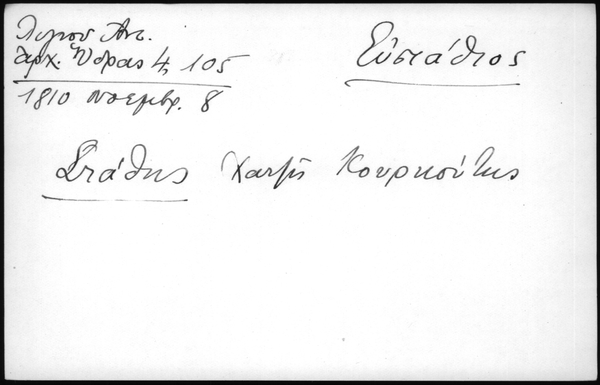 Λιγνού Ἀντ.
Ἀρχ. Ὕδρας 4, 105
1810 νοεμβρ. 8
Εὐστάθιος
Στάθης Χατζῆ Κουρκούτης